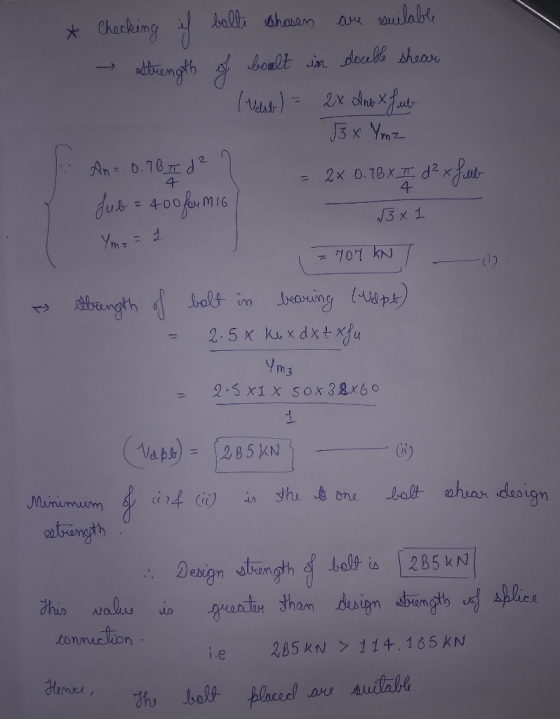 * Checking if bolts chosen are suitable
→ strength of boolt in double shear
(Vdsb) = 2 x Anb x fub / √3 x Ymz
{ ∵ An = 0.78 π/4 d²
fub = 400 for M16
Ymz = 1 }
= 2 x 0.78 x π/4 d² x fub / √3 x 1
= 707 kN —— (i)
→ strength of bolt in bearing (Vdpb)
= 2.5 x Kb x d x t x fu / Ym3
= 2.5 x 1 x 50 x 38 x 60 / 1
(Vdpb) = 285 kN —— (ii)
Minimum of (i) & (ii) is the one bolt shear design
strength.
∴ Design strength of bolt is 285 kN
This value is greater than design strength of splice
connection.
i.e 285 kN > 114.165 kN
Hence, The bolt placed are suitable